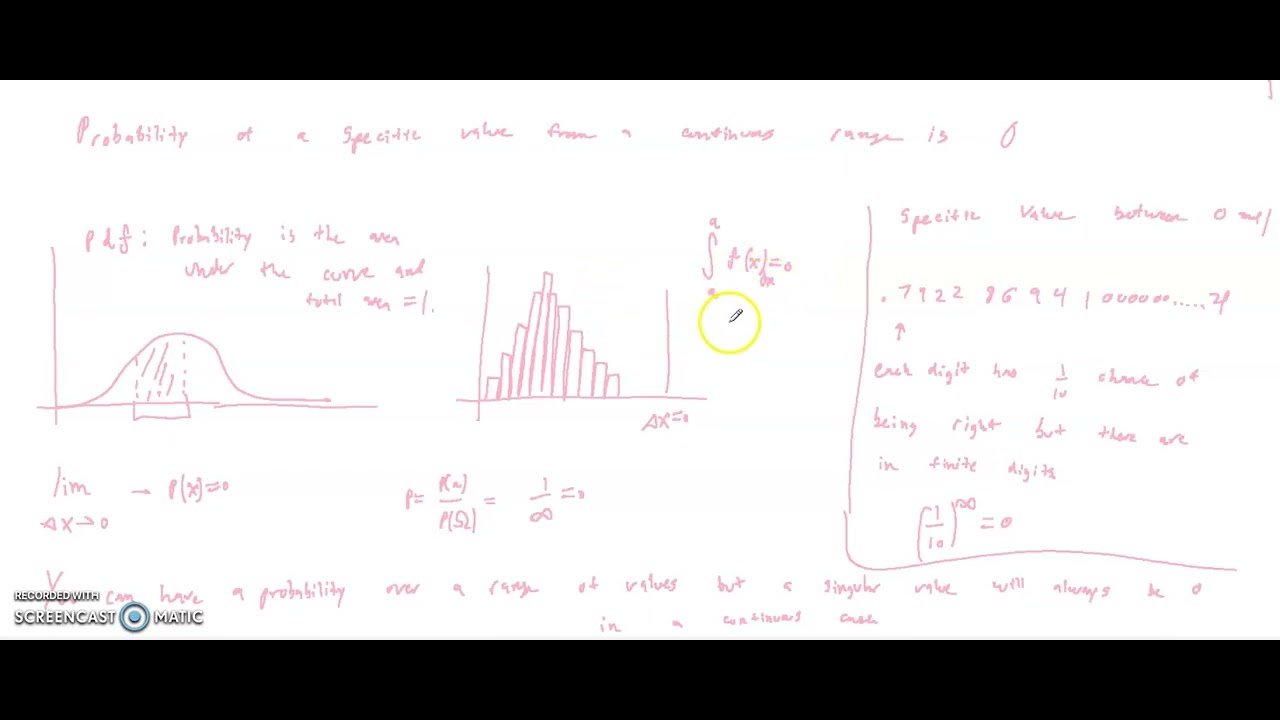 Probability of a specific value from a continuous range is 0
pdf: Probability is the area
under the curve and
total area = 1.
∫ₐᵃ f(x)dx = 0
Δx=0
lim → P(x)=0
Δx→0
P= P(x)/P(Ω) = 1/∞ = 0
Specific value between 0 and 1
.7922 8694 1000000.....24
↑
each digit has 1/10 chance of
being right but there are
in finite digits
(1/10)^∞ = 0
You can have a probability over a range of values but a singular value will always be 0
in a continuous case
RECORDED WITH
SCREENCAST MATIC